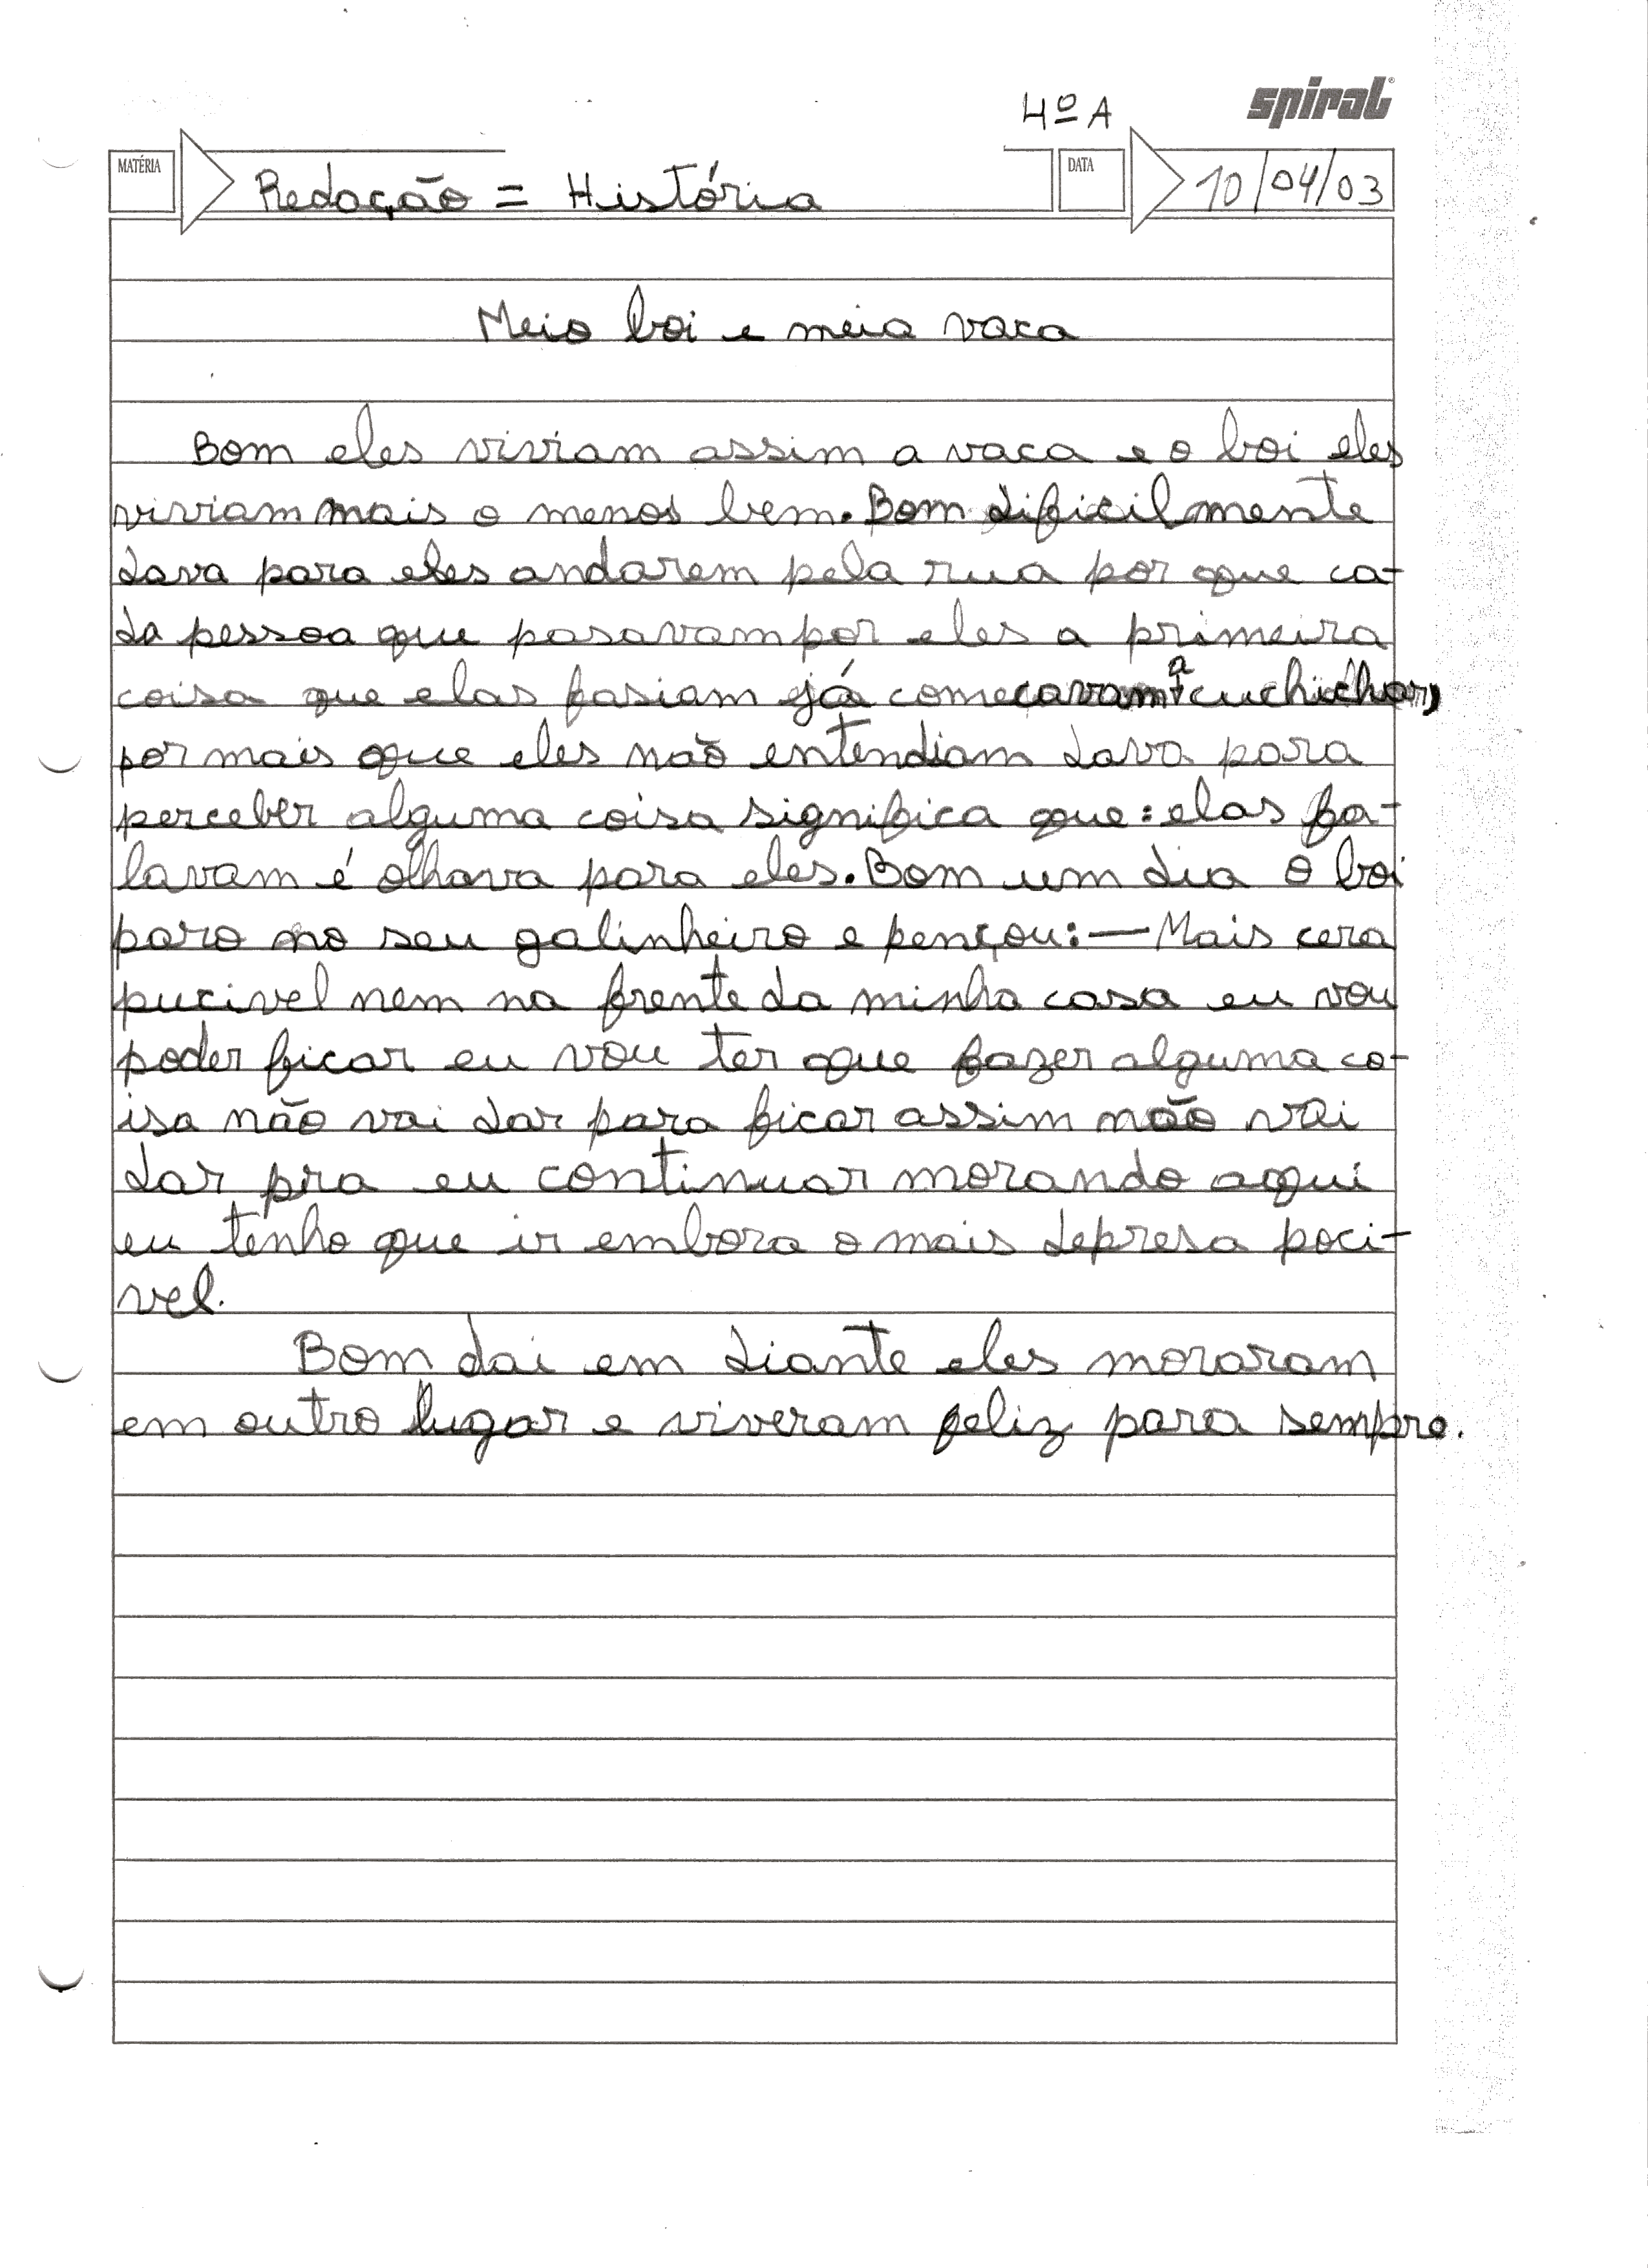 4º A
spiral
MATÉRIA Redação = História DATA 10/04/03
Meio boi e meia vaca
Bom eles viviam assim a vaca e o boi eles
viviam mais o menos bem. Bom dificilmente
dava para eles andarem pela rua por que ca-
da pessoa que pasavam por eles a primeira
coisa que elas fasiam já comecavam a cuchichar,
por mais que eles não entendiam dava para
perceber alguma coisa significa que: elas fa-
lavam é olhava para eles. Bom um dia o boi
paro no seu galinheiro e pençou: — Mais cera
pucivel nem na frente da minha casa eu vou
poder ficar eu vou ter que fazer alguma co-
isa não vai dar para ficar assim não vai
dar pra eu continuar morando aqui
eu tenho que ir embora o mais depresa poci-
vel.
Bom dai em diante eles moraram
em outro lugar e viveram feliz para sempre.